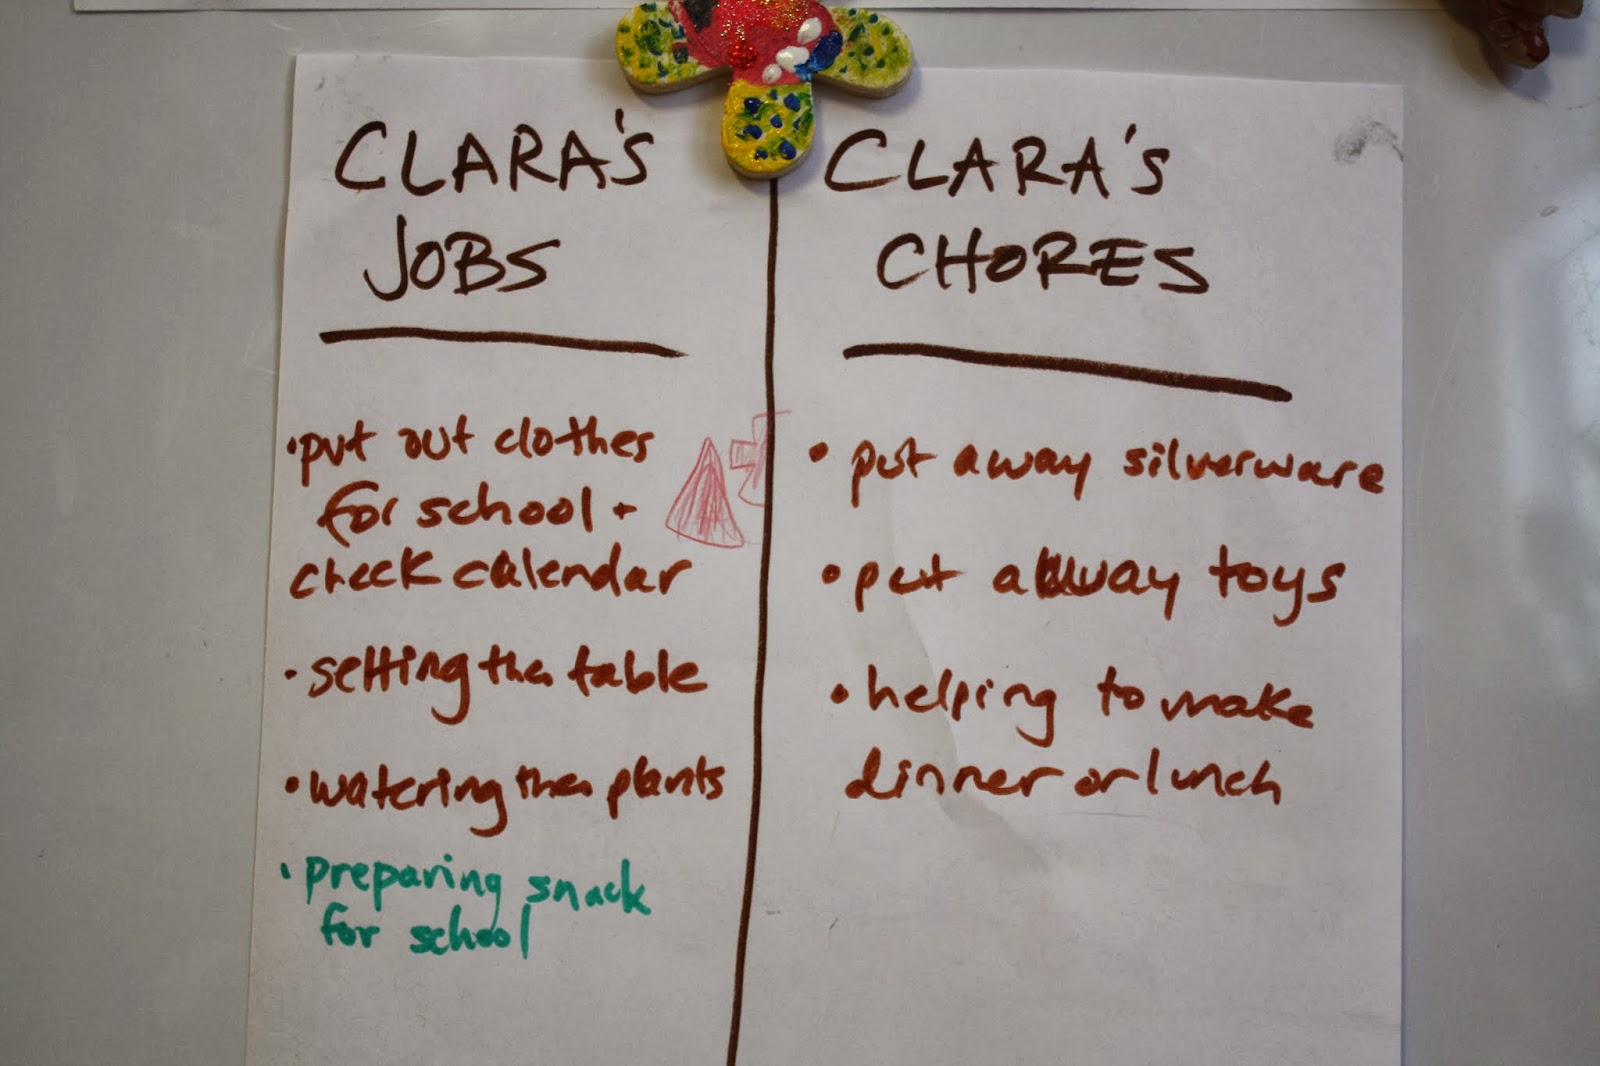 CLARA'S
JOBS
• put out clothes
for school +
check calendar
• setting the table
• watering the plants
• preparing snack
for school
CLARA'S
CHORES
• put away silverware
• put away toys
• helping to make
dinner or lunch